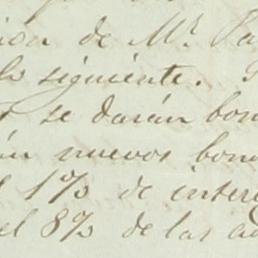 de Mr.
lo siguiente.
se darán bon
nuevos bon
el 1% de inter
el 8% de las